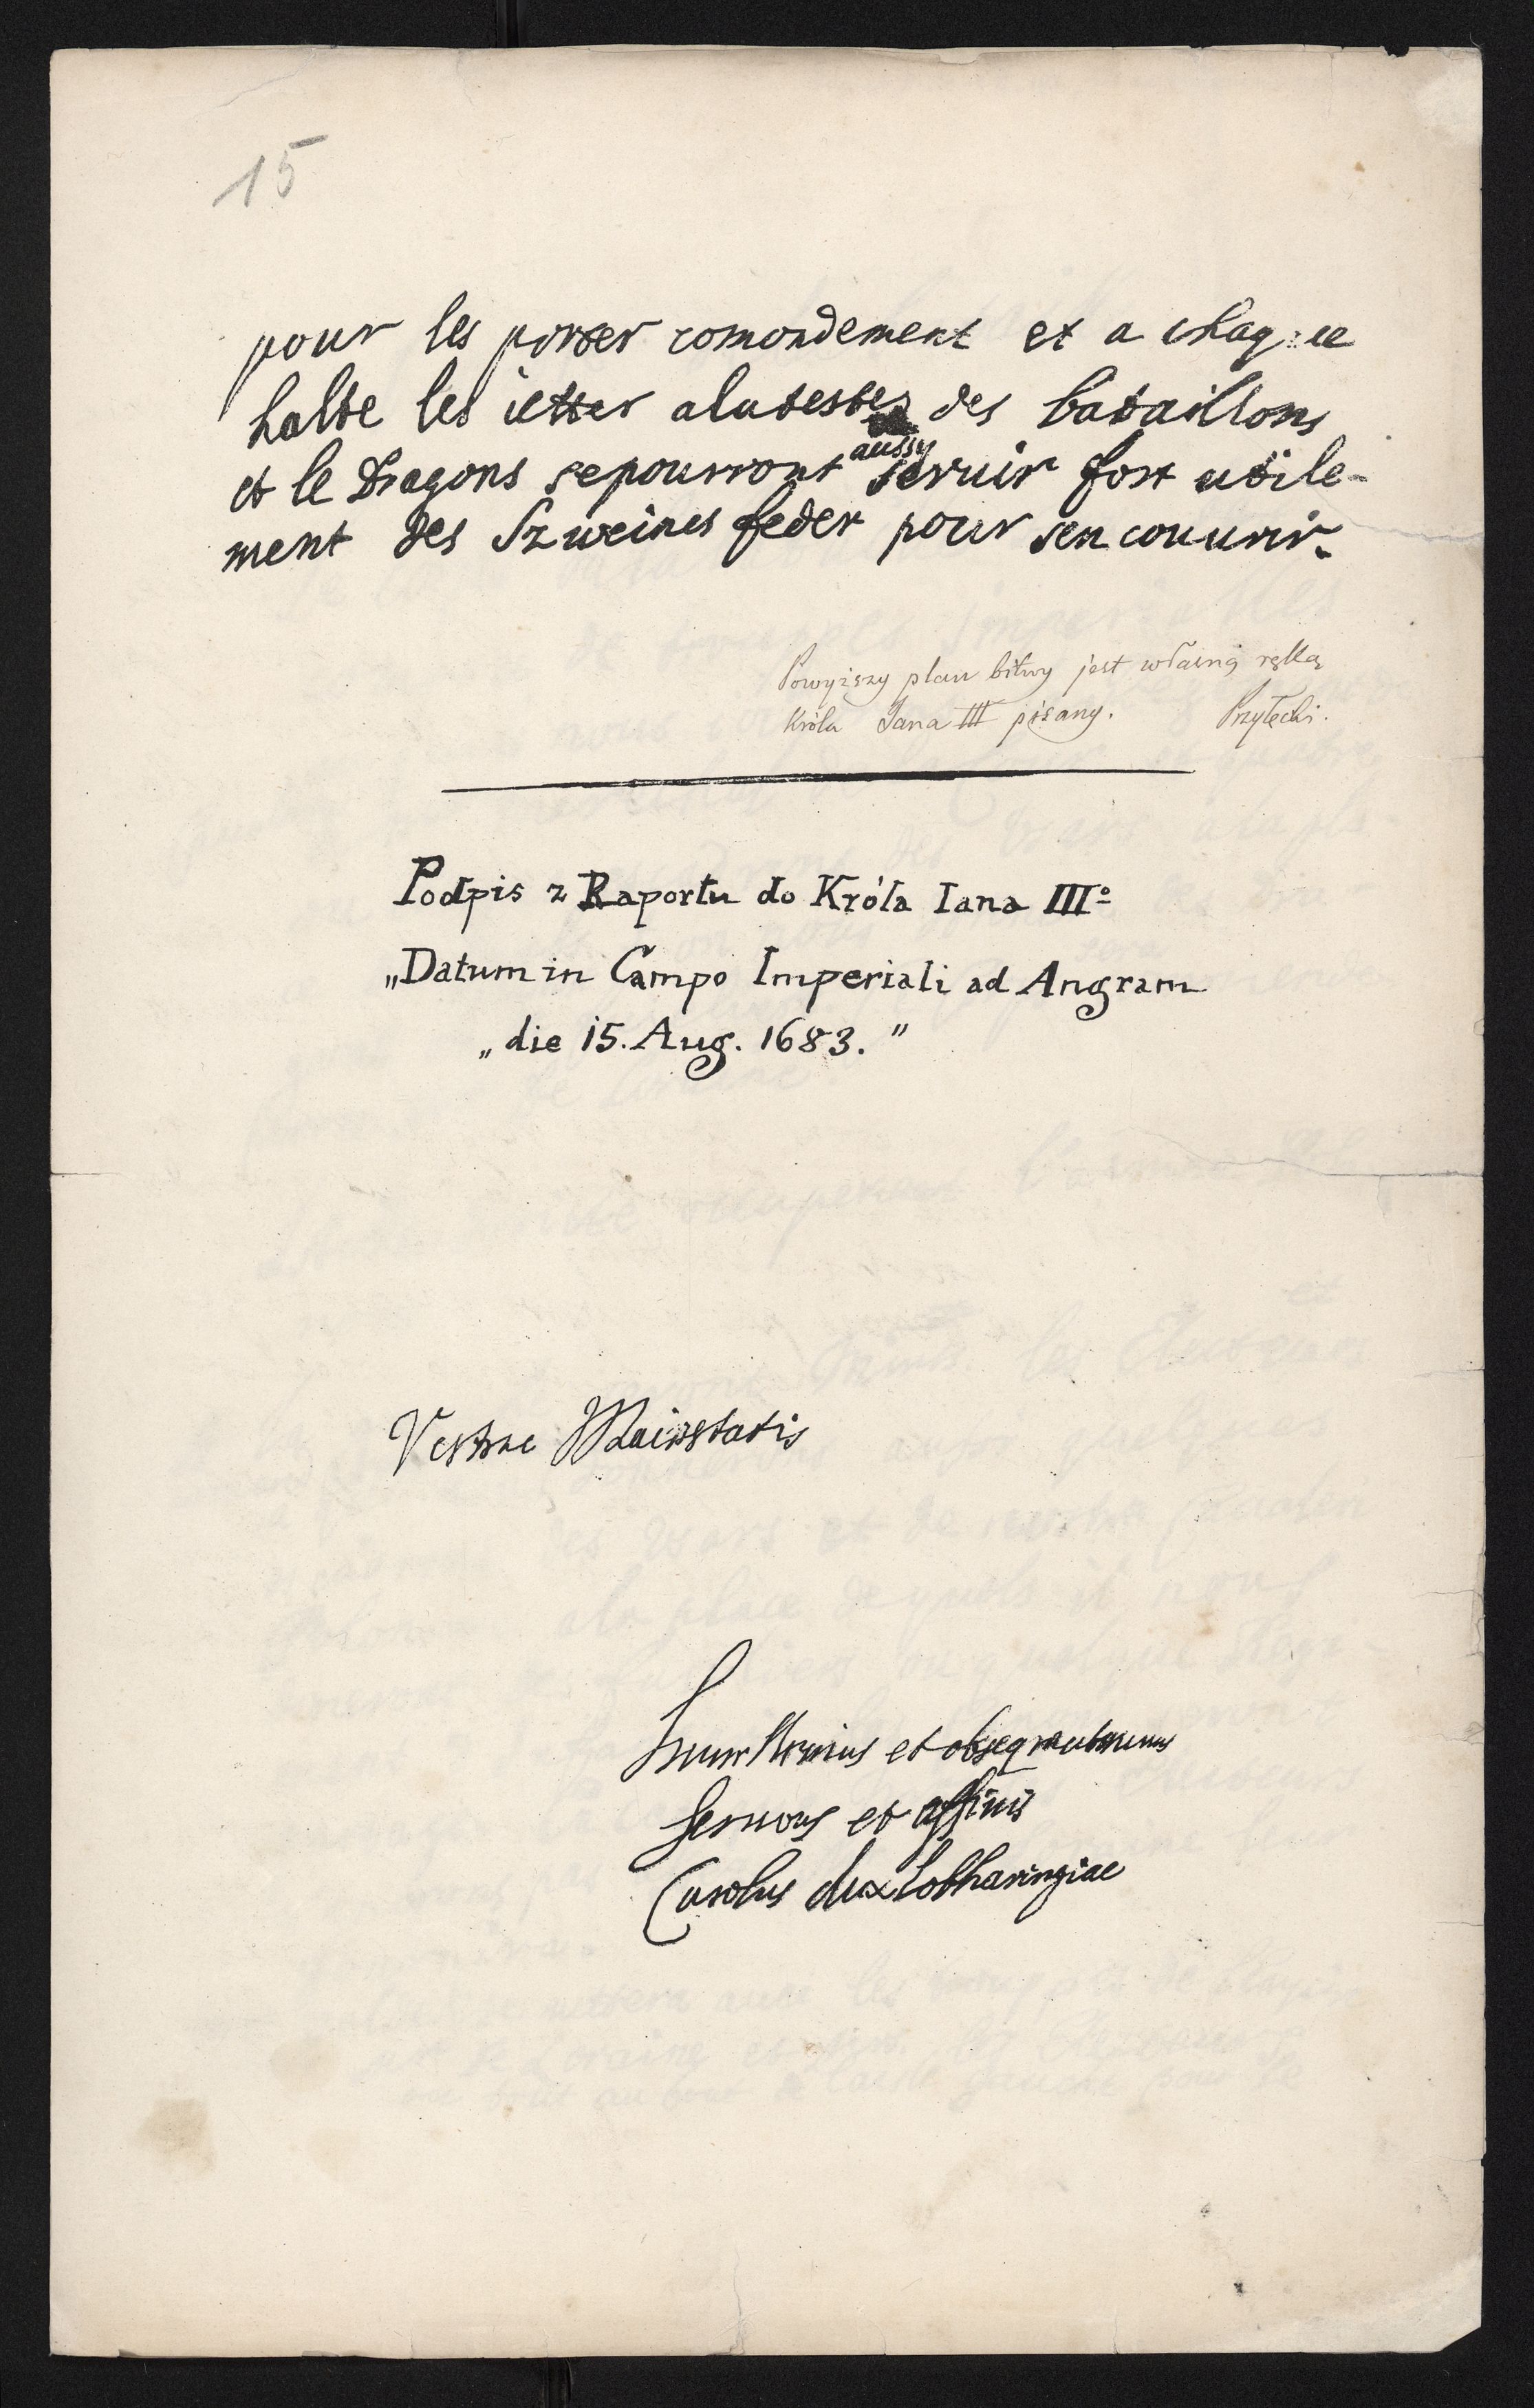 15
pour les porter comondement et a chaq:ue
halte les ietter alatestes des bataillons
et le Dragons sepourront aussy seruir fort utile-
ment des Szweines feder pour sen couurir.
Powyższy plan bitwy jest własną ręką
Króla Jana III pisany. Przyłęcki.
Podpis z Raportu do Króla Iana III°
„Datum in Campo Imperiali ad Angram
„die 15. Aug. 1683."
Vestrae Maiestatis
et obsequentissimus
seruus et affinis
Carolus dux Lotharingiae